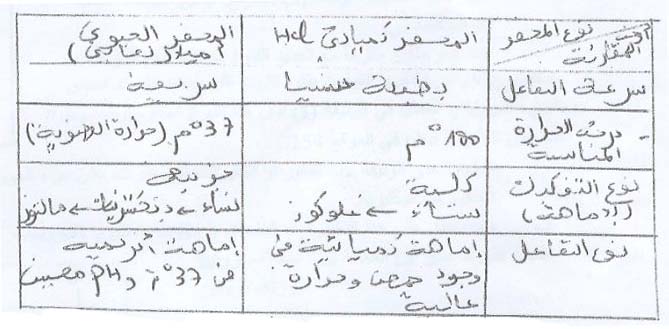 نوع المحفز
أوجه المقارنة
المحفز كيميائي Hcl
المحفز الحيوي
(أميلاز لعابي)
سرعة التفاعل
بطيئة حسبيا
سريعة
- درجة الحرارة
المناسبة
100°م
37°م (حرارة العضوية)
نوع التفكيك
(الإماهة)
كلية
نشاء → غلوكوز
جزئية
نشاء → دكسترينات → مالتوز
نوع التفاعل
إماهة كيميائية في
وجود حمض وحرارة
عالية
إماهة أنزيمية
في 37°م و PH معين